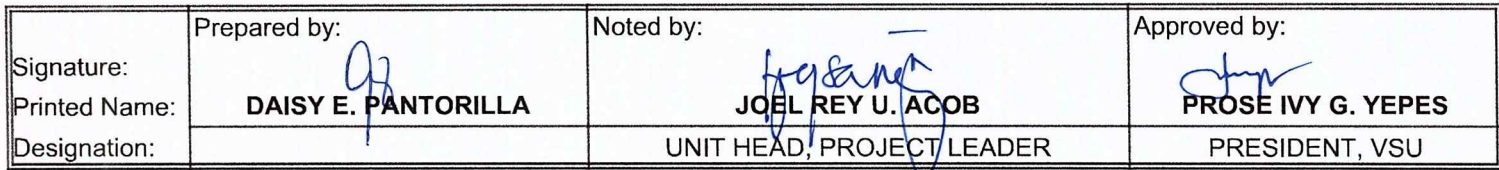 Prepared by: Noted by: Approved by:
Signature:
Printed Name: DAISY E. PANTORILLA JOEL REY U. ACOB PROSE IVY G. YEPES
Designation: UNIT HEAD, PROJECT LEADER PRESIDENT, VSU